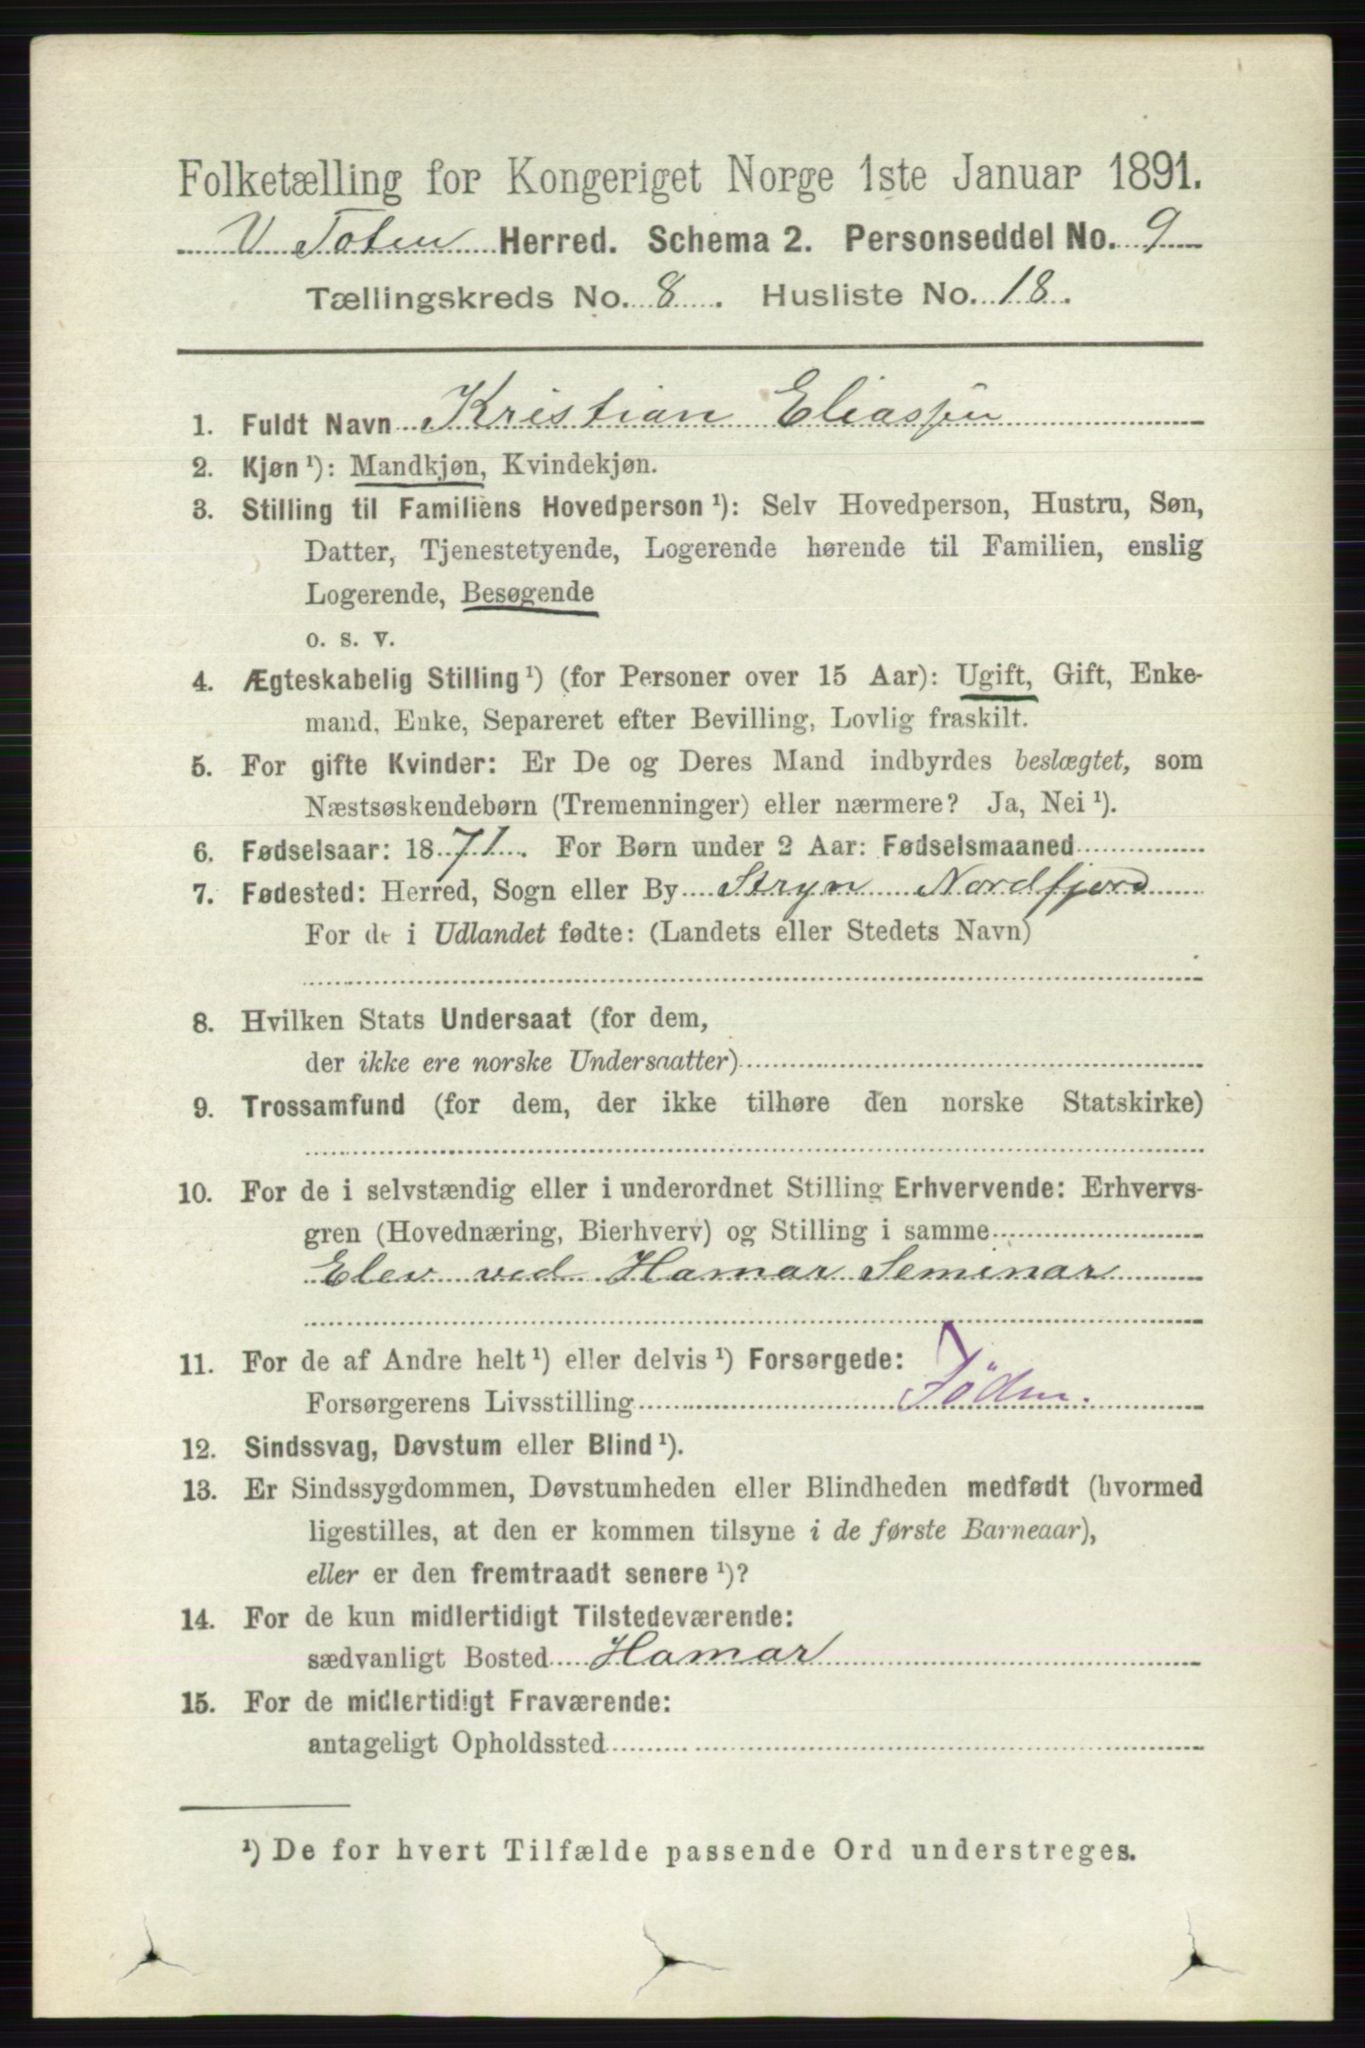 Folketælling for Kongeriget Norge 1ste Januar 1891.
V Toten Herred. Schema 2. Personseddel No. 9
Tællingskreds No. 8. Husliste No. 18.
1. Fuldt Navn Kristian Eliassen
2. Kjøn ¹): Mandkjøn, Kvindekjøn.
3. Stilling til Familiens Hovedperson ¹): Selv Hovedperson, Hustru, Søn,
Datter, Tjenestetyende, Logerende hørende til Familien, enslig
Logerende, Besøgende
o. s. v.
4. Ægteskabelig Stilling ¹) (for Personer over 15 Aar): Ugift, Gift, Enke-
mand, Enke, Separeret efter Bevilling, Lovlig fraskilt.
5. For gifte Kvinder: Er De og Deres Mand indbyrdes beslægtet, som
Næstsøskendebørn (Tremenninger) eller nærmere? Ja, Nei ¹).
6. Fødselsaar: 1871. For Børn under 2 Aar: Fødselsmaaned
7. Fødested: Herred, Sogn eller By Stryn Nordfjord
For de i Udlandet fødte: (Landets eller Stedets Navn)
8. Hvilken Stats Undersaat (for dem,
der ikke ere norske Undersaatter)
9. Trossamfund (for dem, der ikke tilhøre den norske Statskirke)
10. For de i selvstændig eller i underordnet Stilling Erhvervende: Erhvervs-
gren (Hovednæring, Bierhverv) og Stilling i samme
Elev ved Hamar Seminar
11. For de af Andre helt ¹) eller delvis ¹) Forsørgede:
Forsørgerens Livsstilling
12. Sindssvag, Døvstum eller Blind ¹).
13. Er Sindssygdommen, Døvstumheden eller Blindheden medfødt (hvormed
ligestilles, at den er kommen tilsyne i de første Barneaar),
eller er den fremtraadt senere ¹)?
14. For de kun midlertidigt Tilstedeværende:
sædvanligt Bosted Hamar
15. For de midlertidigt Fraværende:
antageligt Opholdssted
¹) De for hvert Tilfælde passende Ord understreges.